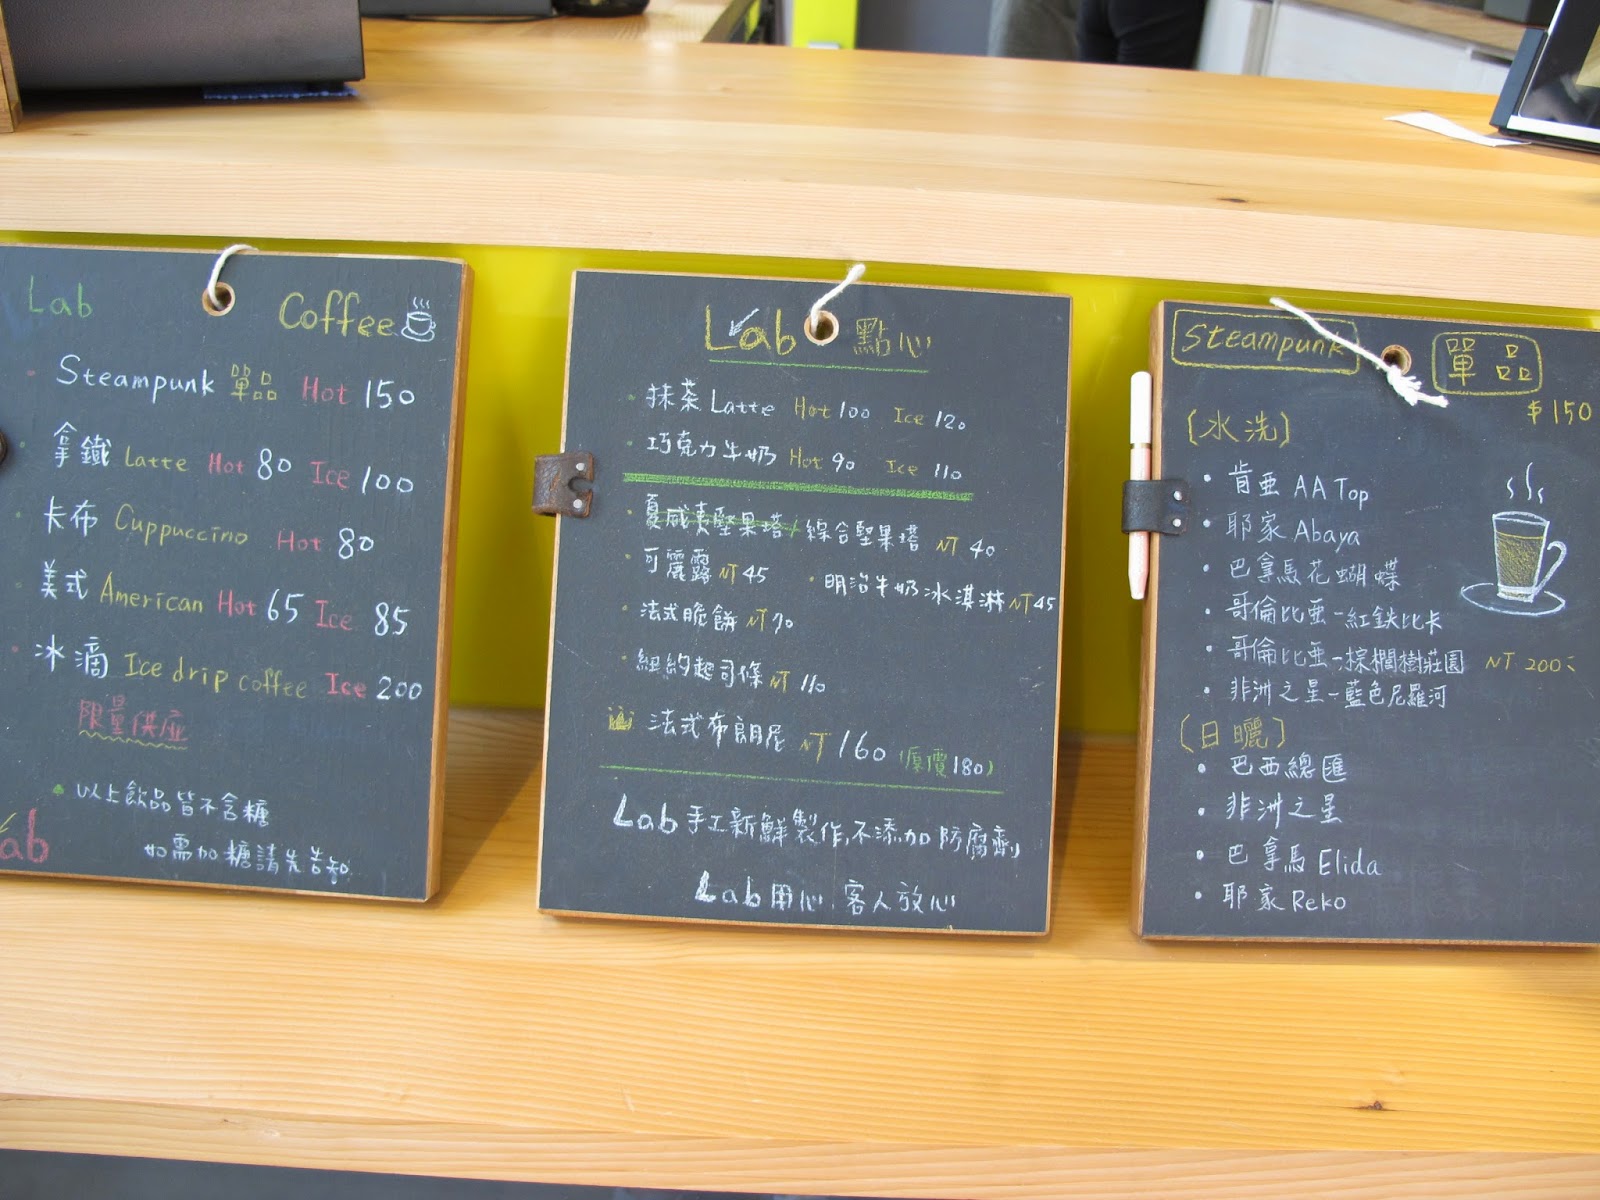 Lab Coffee
Steampunk 單品 Hot 150
拿鐵 Latte Hot 80 Ice 100
卡布 Cuppuccino Hot 80
美式 American Hot 65 Ice 85
冰滴 Ice drip coffee Ice 200
限量供应
以上飲品皆不含糖
如需加糖請先告知
Lab 點心
抹茶 Latte Hot 100 Ice 120
巧克力牛奶 Hot 90 Ice 110
夏威夷堅果塔 / 綜合堅果塔 NT 40
可麗露 NT 45
明治牛奶冰淇淋 NT 45
法式脆餅 NT 70
紐約起司條 NT 110
法式布朗尼 NT 160 (原價180)
Lab 手工新鮮製作,不添加防腐劑
Lab 用心.客人放心
Steampunk 單品
$150
(水洗)
肯亞 AA Top
耶家 Abaya
巴拿馬花蝴蝶
哥倫比亞-紅鉄比卡
哥倫比亞-棕櫚樹莊園 NT 200
非洲之星-藍色尼羅河
(日曬)
巴西總匯
非洲之星
巴拿馬 Elida
耶家 Reko